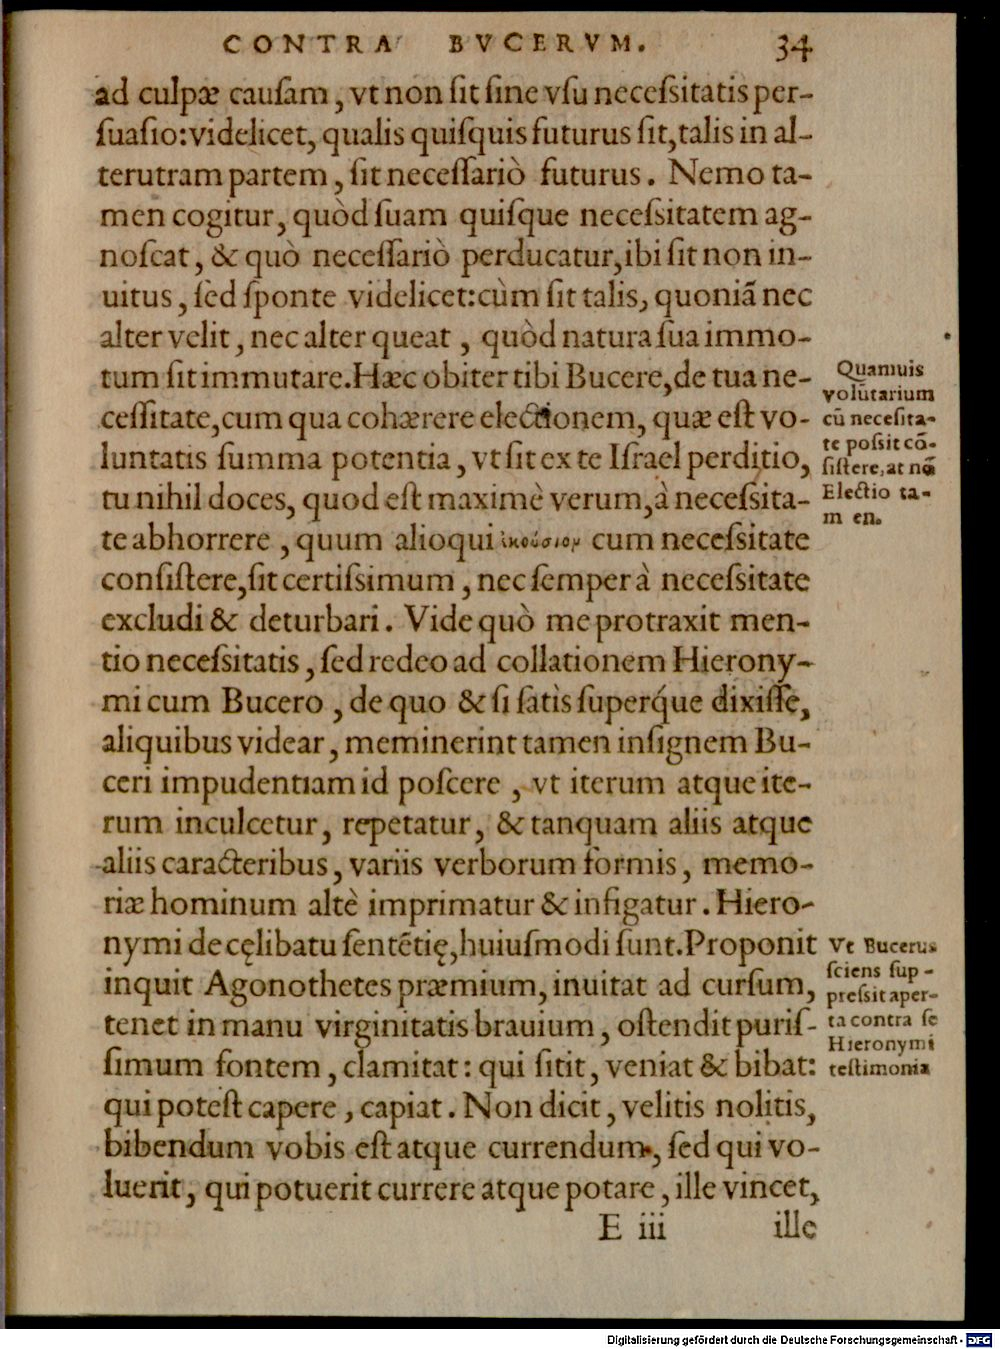 CONTRA BVCERVM. 34
ad culpæ cauſam, vt non ſit ſine vſu neceſsitatis per-
ſuaſio: videlicet, qualis quiſquis futurus ſit, talis in al-
terutram partem, ſit neceſſariò futurus. Nemo ta-
men cogitur, quòd ſuam quiſque neceſsitatem ag-
noſcat, & quò neceſſariò perducatur, ibi ſit non in-
uitus, ſed ſponte videlicet: cùm ſit talis, quoniã nec
alter velit, nec alter queat, quòd natura ſua immo-
tum ſit immutare. Hæc obiter tibi Bucere, de tua ne-
ceſſitate, cum qua cohærere electionem, quæ eſt vo-
luntatis ſumma potentia, vt ſit ex te Iſrael perditio,
tu nihil doces, quod eſt maximè verum, à neceſsita-
te abhorrere, quum alioqui ἑκούσιον cum neceſsitate
conſiſtere, ſit certiſsimum, nec ſemper à neceſsitate
excludi & deturbari. Vide quò me protraxit men-
tio neceſsitatis, ſed redeo ad collationem Hierony-
mi cum Bucero, de quo & ſi ſatìs ſuperq́ue dixiſſe,
aliquibus videar, meminerint tamen inſignem Bu-
ceri impudentiam id poſcere, vt iterum atque ite-
rum inculcetur, repetatur, & tanquam aliis atque
aliis caracteribus, variis verborum formis, memo-
riæ hominum altè imprimatur & infigatur. Hiero-
nymi de cęlibatu ſentẽtię, huiuſmodi ſunt. Proponit
inquit Agonothetes præmium, inuitat ad curſum,
tenet in manu virginitatis brauium, oſtendit puriſ-
ſimum fontem, clamitat: qui ſitit, veniat & bibat:
qui poteſt capere, capiat. Non dicit, velitis nolitis,
bibendum vobis eſt atque currendum, ſed qui vo-
luerit, qui potuerit currere atque potare, ille vincet,
E iii ille
Quamuis
volũtarium
cũ neceſita-
te poſsit cõ-
ſiſtere, at nõ
Electio ta-
m en.
Vt Bucerus
ſciens ſup-
preſsit aper-
ta contra ſe
Hieronymi
teſtimonia
Digitalisierung gefördert durch die Deutsche Forschungsgemeinschaft - DFG